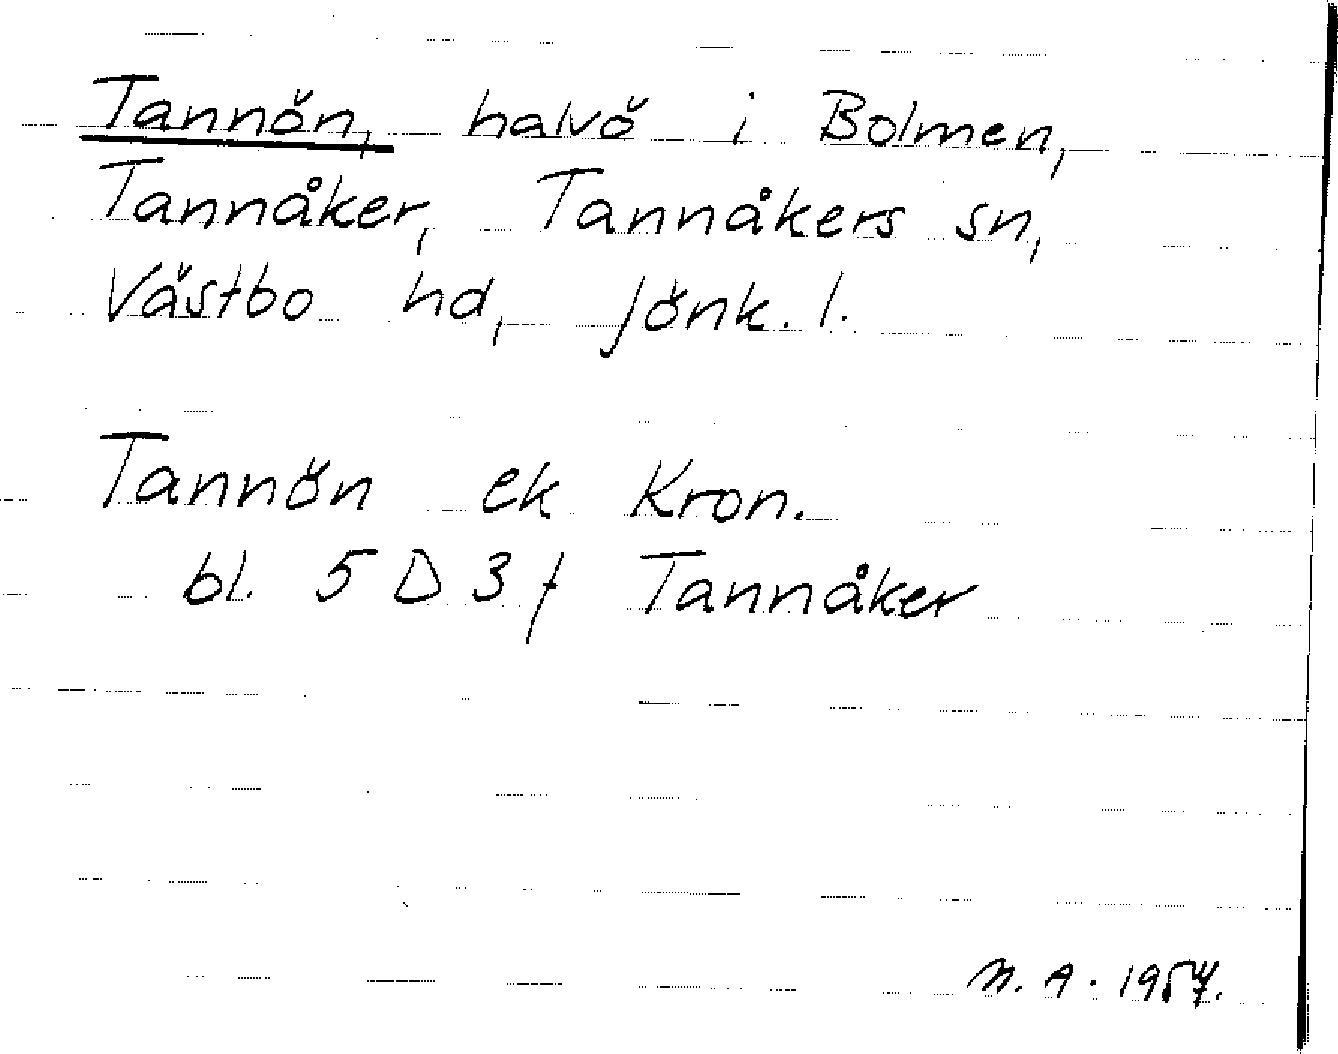 Tannön, halvö i Bolmen,
Tannåker, Tannåkers sn,
Västbo hd, Jönk. l.
Tannön ek Kron.
bl. 5 D 3 f Tannåker
N. A. 1957.